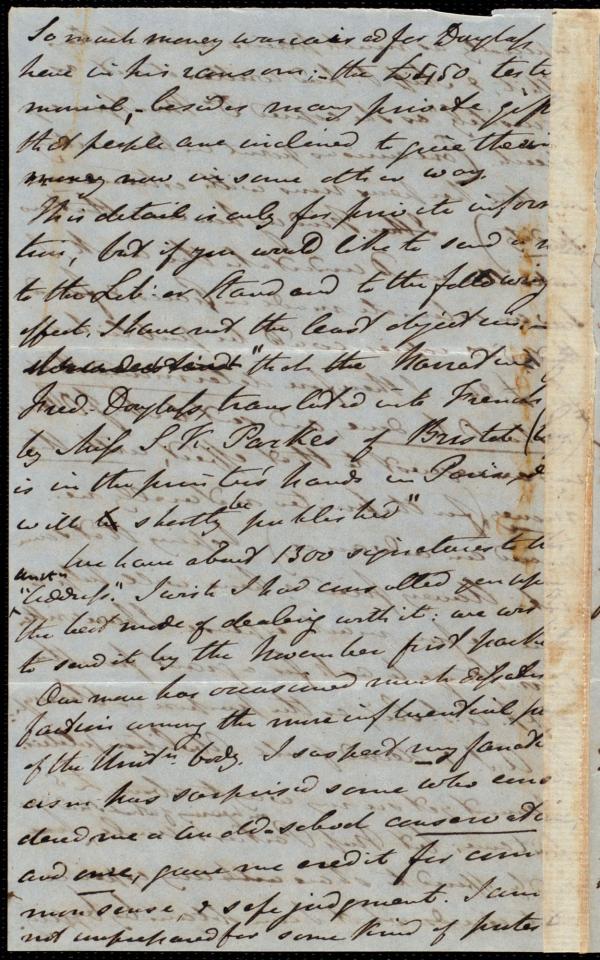 So much money was raised for Douglass
here in his ransom; - the £450 testi
monial, - besides many private gif
that people are inclined to give their
money now in some other way.
This detail is only for private inform
tion, but if you would like to send a n
to the Lib: or Standard to the following
effect, I have not the least objection; -
"that the Narrative of
Fred. Douglass, translated into French
by Miss S. K. Parkes of Bristol (Eng)
is in the printer's hands in Paris &
will be shortly published"
We have about 1300 signatures to th
Unitn
"Address". I wish I had consulted you up
the best mode of dealing with it: we wish
to send it by the November first packe
Our move has occasioned much dissatis
faction among the more influential p
of the Unitn body. I suspect my fanati
cism has surprised some who cons
dered me an old-school conservati
and once, gave me credit for com
mon sense, & safe judgment. I am
not unprepared for some kind of protes